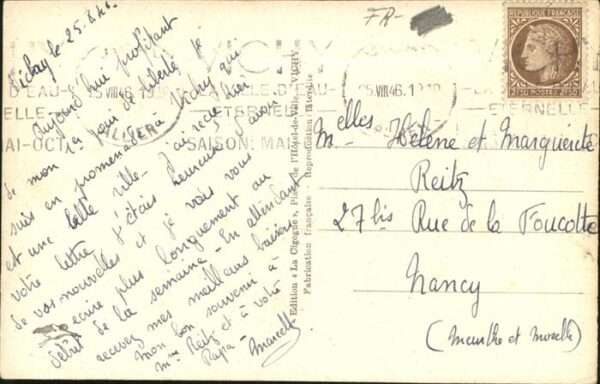 Vichy le 25.8.46.
Aujourd'hui profitant
de mon 1er jour de liberté je
suis en promenade à Vichy qui
et une belle ville. J'ai reçu hier
votre lettre j'étais heureuse d'avoir
de vos nouvelles et je vais vous
écrire plus longuement au
début de la semaine - En attendant
recevez mes meilleurs baisers
mon bon souvenir à
Mme Reitz et à votre
Papa -
FR-
VICHY
15 VIII 46
ALLIER
ETERNELLE
SAISON: MAI
ETERNELLE
REPUBLIQUE FRANÇAISE
2F50 POSTES 2F50
Edition « La Cigogne », Place de l'Hôtel-de-Ville, VICHY
Fabrication française - Reproduction interdite
Melles Hélène et Marguerite
Reitz
27 bis Rue de la Foucotte
Nancy
(Meurthe et Moselle)